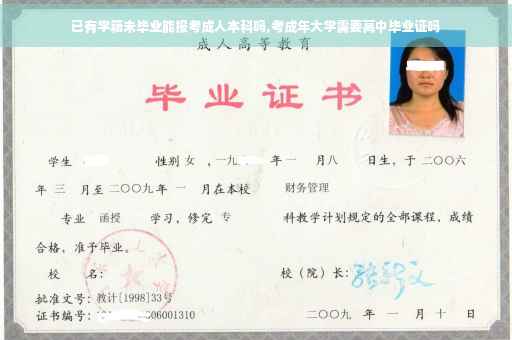 已有学籍未毕业能报考成人本科吗,考成年大学需要高中毕业证吗
成人高等教育
毕业证书
学生 性别 女 ,一九 年一 月八 日生,于二〇〇六
年 三 月至二〇〇九年 一 月在本校 财务管理
专业 函授 学习,修完 专 科教学计划规定的全部课程,成绩
合格,准予毕业。
校 名: 校(院)长:
批准文号:教计[1998]33号
证书编号: 06001310 二〇〇九 年 一 月 十 日